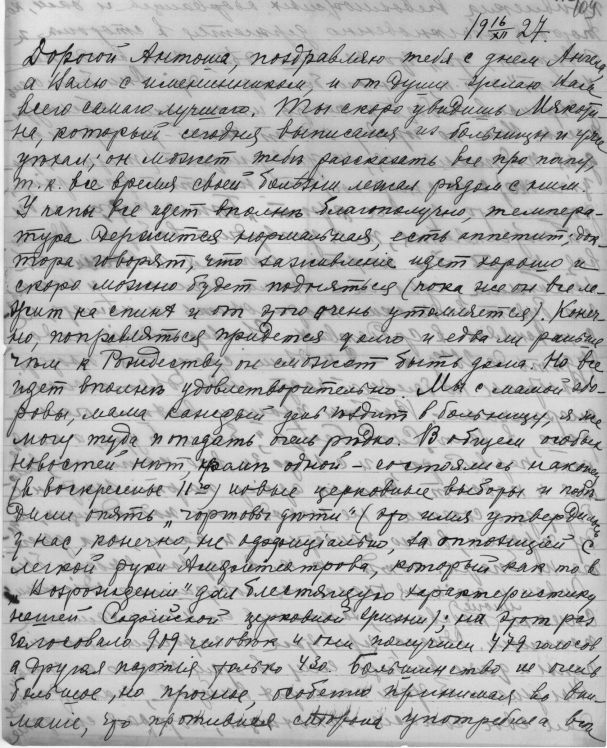 109
19 16/XII 27.
Дорогой Антоша, поздравляю тебя с днем Ангела,
а Валю с именинником, и от души желаю Вам
всего самаго лучшаго. Ты скоро увидишь Мякоти-
на, который сегодня выписался из больницы и уже
уехал; он может тебе разсказать все про папу,
т.к. все время своей болезни лежал рядом с ним.
У папы все идет вполне благополучно, темпера-
тура держится нормальная, есть аппетит, док-
тора говорят, что заживление идет хорошо и
скоро можно будет подняться (пока же он все ле-
жит на спине и от этого очень утомляется). Конеч-
но, поправляться придется долго и едва ли раньше
чем к Рождеству он сможет быть дома. Но все
идет вполне удовлетворительно. Мы с мамой здо-
ровы, мама каждый день ездит в больницу, я же
могу туда попадать очень редко. В общем особых
новостей нет, кроме одной – состоялись наконец
(в воскресенье 11го) новые церковные выборы и побе-
дили опять „чортовы дети“ (это имя утвердилось
у нас, конечно, не оффициально, за оппозицией с
легкой руки Амфитеатрова, который как то в
„Возрождении“ дал блестящую характеристику
нашей Софийской церковной жизни); на этот раз
голосовало 909 человек и они получили 479 голосов
а другая партия только 430. Большинство не очень
большое, но прочное, особенно принимая во вни-
мание, что противная сторона употребила все